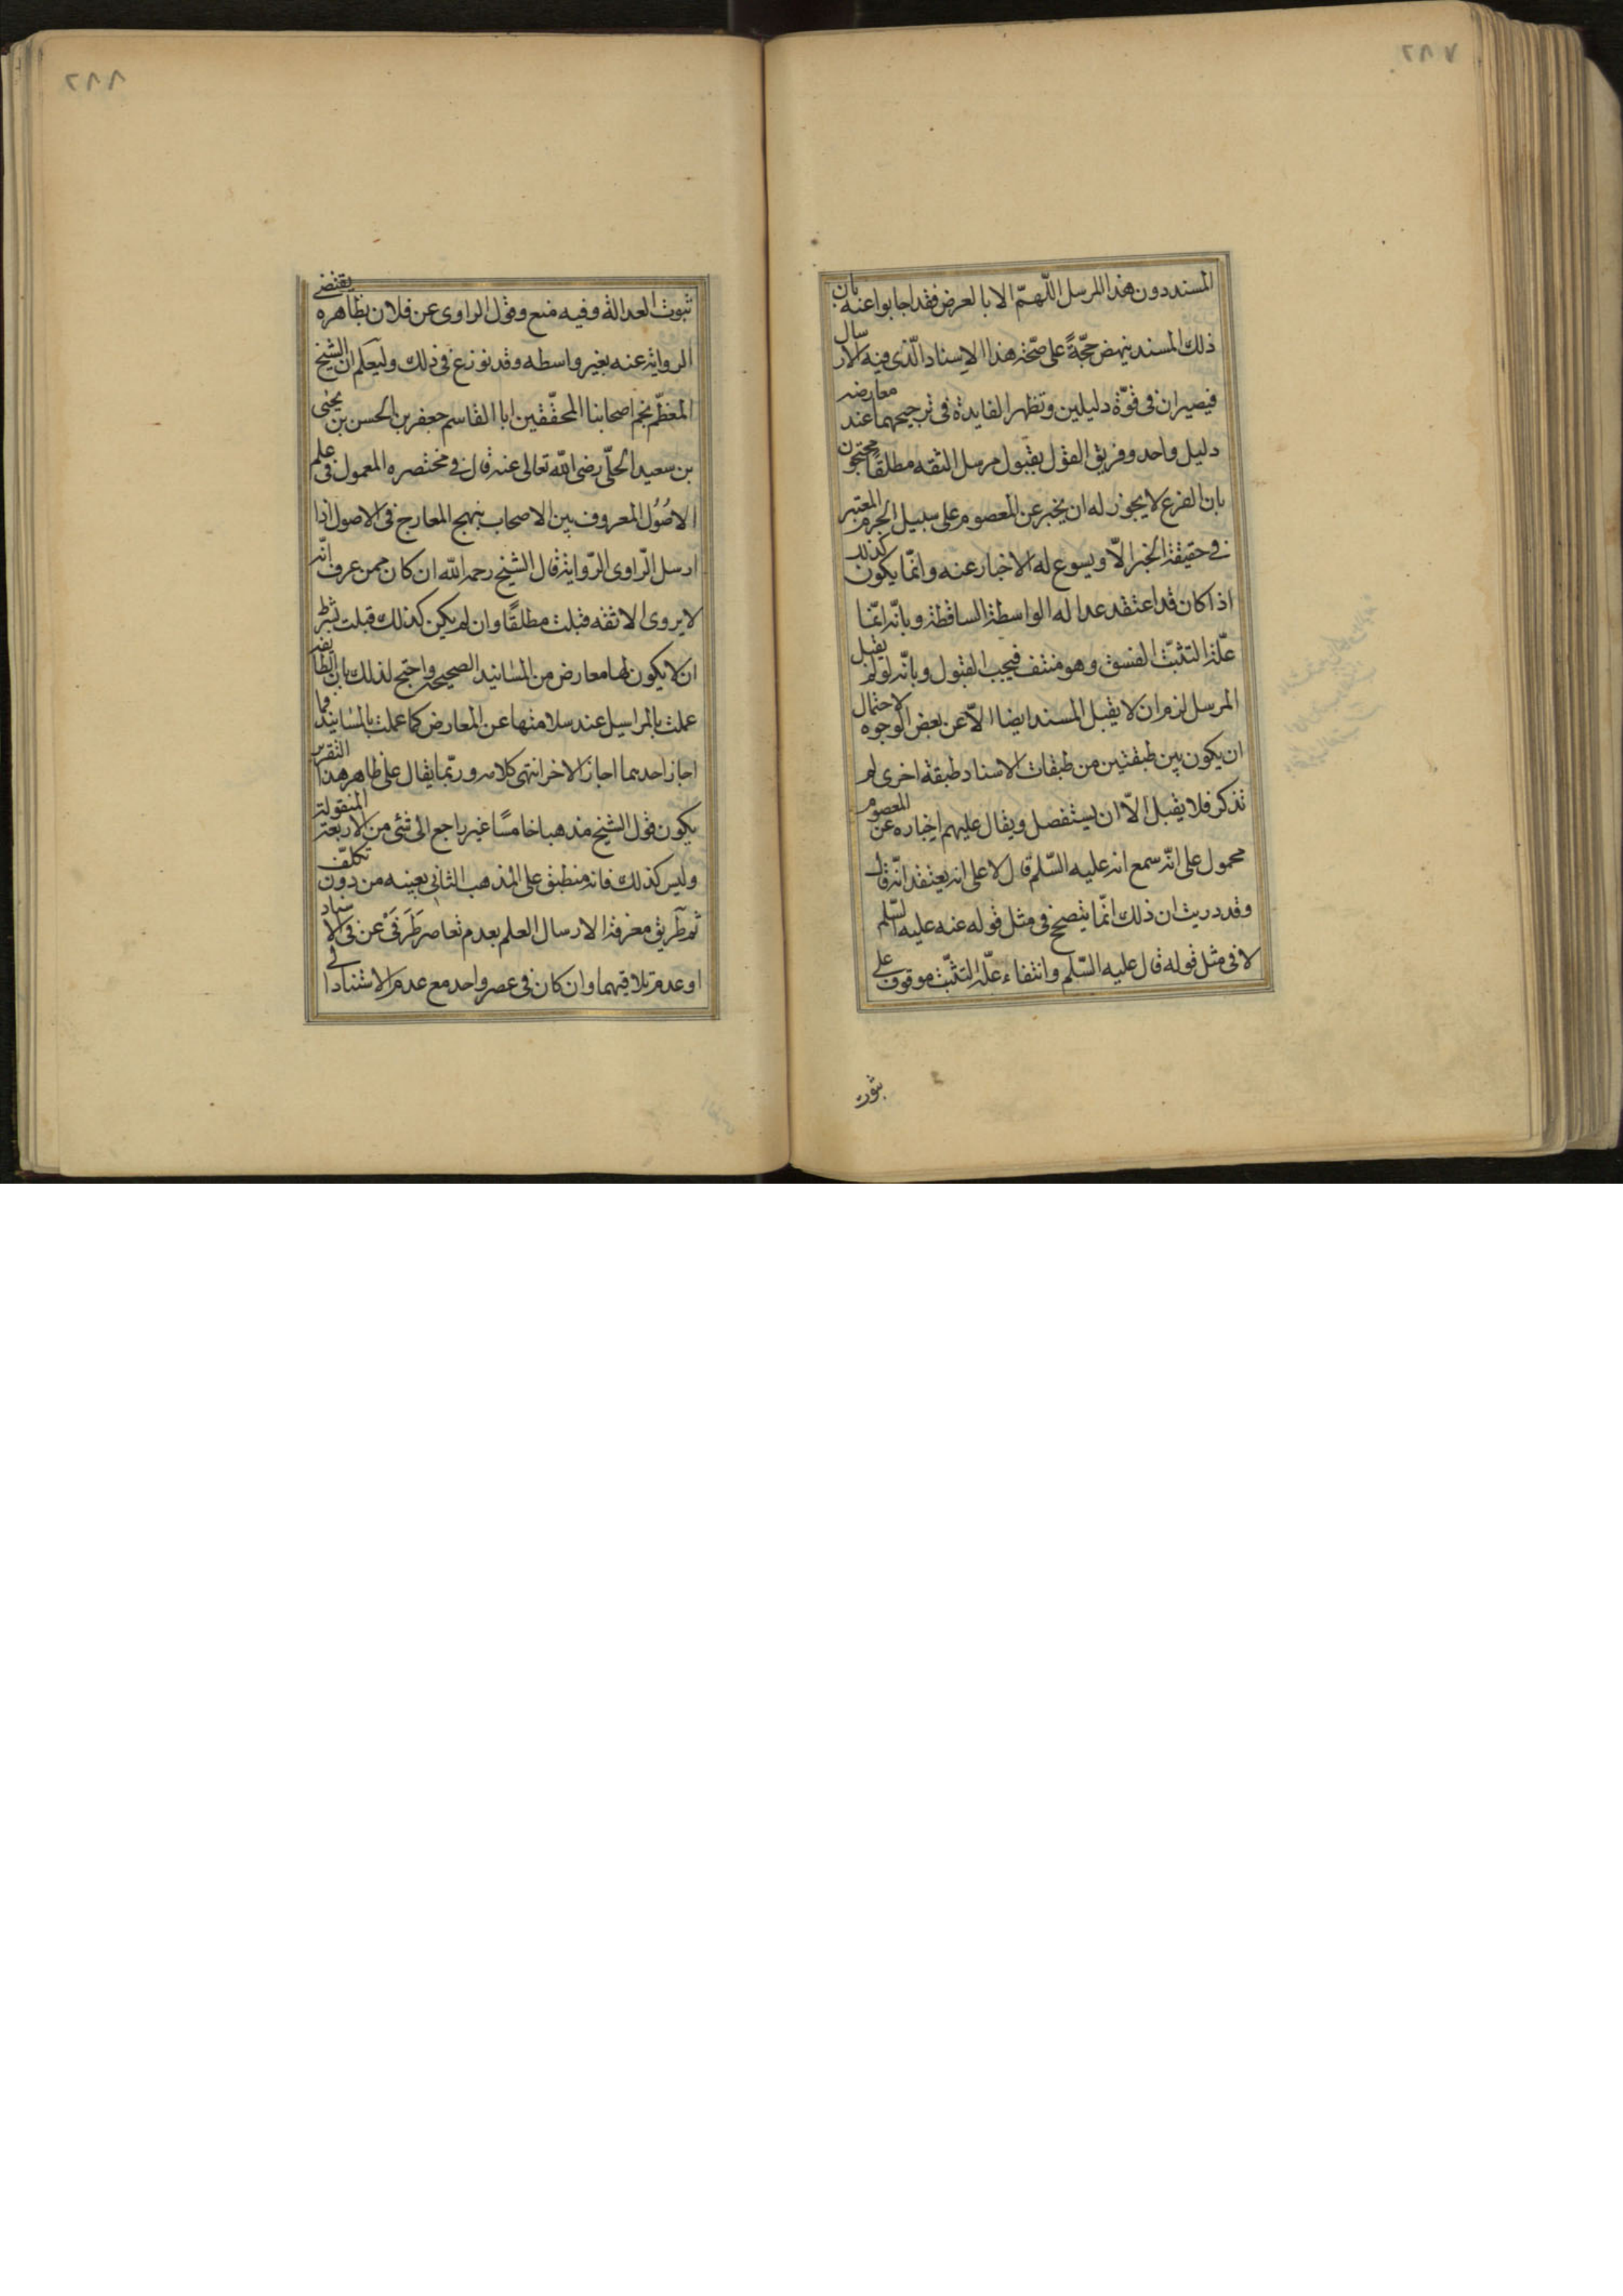 ٢٨٧
المسند دون هذا المرسل اللّهمّ الا بالعرض فقد اجابوا عنه بان
ذلك المسند ينهض حجّةً على صحّة هذا الاسناد الّذى فيه الارسال
فيصيران فى قوّة دليلين وتظهر الفايدة فى ترجيحهما عند معارضة
دليل واحد وفريق القول بقبول مرسل الثقه مطلقًا محتجون
بان الفرع لا يجوز له ان يخبر عن المعصوم على سبيل الجزم المعتبر
فى حقيقة الخبر الّا ويسوع له الاخبار عنه وانّما يكون كذلك
اذا كان قد اعتقد عداله الواسطة الساقطة وبانّه انّما
علّة التثبّت الفسق وهو منتف فيجب القبول وبانّه لو لم يقبل
المرسل لزم ان لا يقبل المسند ايضا الّا عن بعض الوجوه لاحتمال
ان يكون بين طبقتين من طبقات الاسناد طبقة اخرى لم
تذكر فلا يقبل الّا ان يستفصل ويقال عليهم اخباره عن المعصوم
محمول على انّه سمع انه عليه السّلم قال لا على انه يعتقد انّه قال
وقد دريت ان ذلك انّما يتصحّ فى مثل قوله عنه عليه السّلم
لا فى مثل قوله قال عليه السّلم وانتفاء علّة التثبّت موقوف على
ثبوت
٢٨٨
ثبوت العدالة وفيه منع وقول الراوى عن فلان بظاهره يقتضى
الرواية عنه بغير واسطه وقد نوزع فى ذلك وليعلم ان الشيخ
المعظّم نجم اصحابنا المحقّقين ابا القاسم جعفر بن الحسن بن يحيى
بن سعيد الحلّى رضى اللّه تعالى عنه قال فى مختصره المعمول فى علم
الاصُول المعروف بين الاصحاب بنهج المعارج فى الاصول اذا
ارسل الرّاوى الرّواية قال الشيخ رحمه اللّه ان كان ممن عرف انّه
لا يروى الا ثقه قبلت مطلقًا وان لم يكن كذلك قبلت بشرط
ان لا يكون لها معارض من المسانيد الصحيحة واحتج لذلك بان الطايفة
عملت بالمراسيل عند سلامتها عن المعارض كما عملت بالمسانيد فما
اجاز احدهما اجاز الاخر انتهى كلامه وربّما يقال على ظاهر هذا التقرير
يكون قول الشيخ مذهبا خامسًا غير راجع الى شئ من الاربعة المنقولة
وليس كذلك فانه منطبق على المذهب الثانى بعينه من دون تكلّف
ثم طريق معرفة الارسال العلم بعدم تعاصر طَرَفَىْ عن فى الاسناد
او عدم تلاقيهما وان كان فى عصر واحد مع عدم الاستناد فى